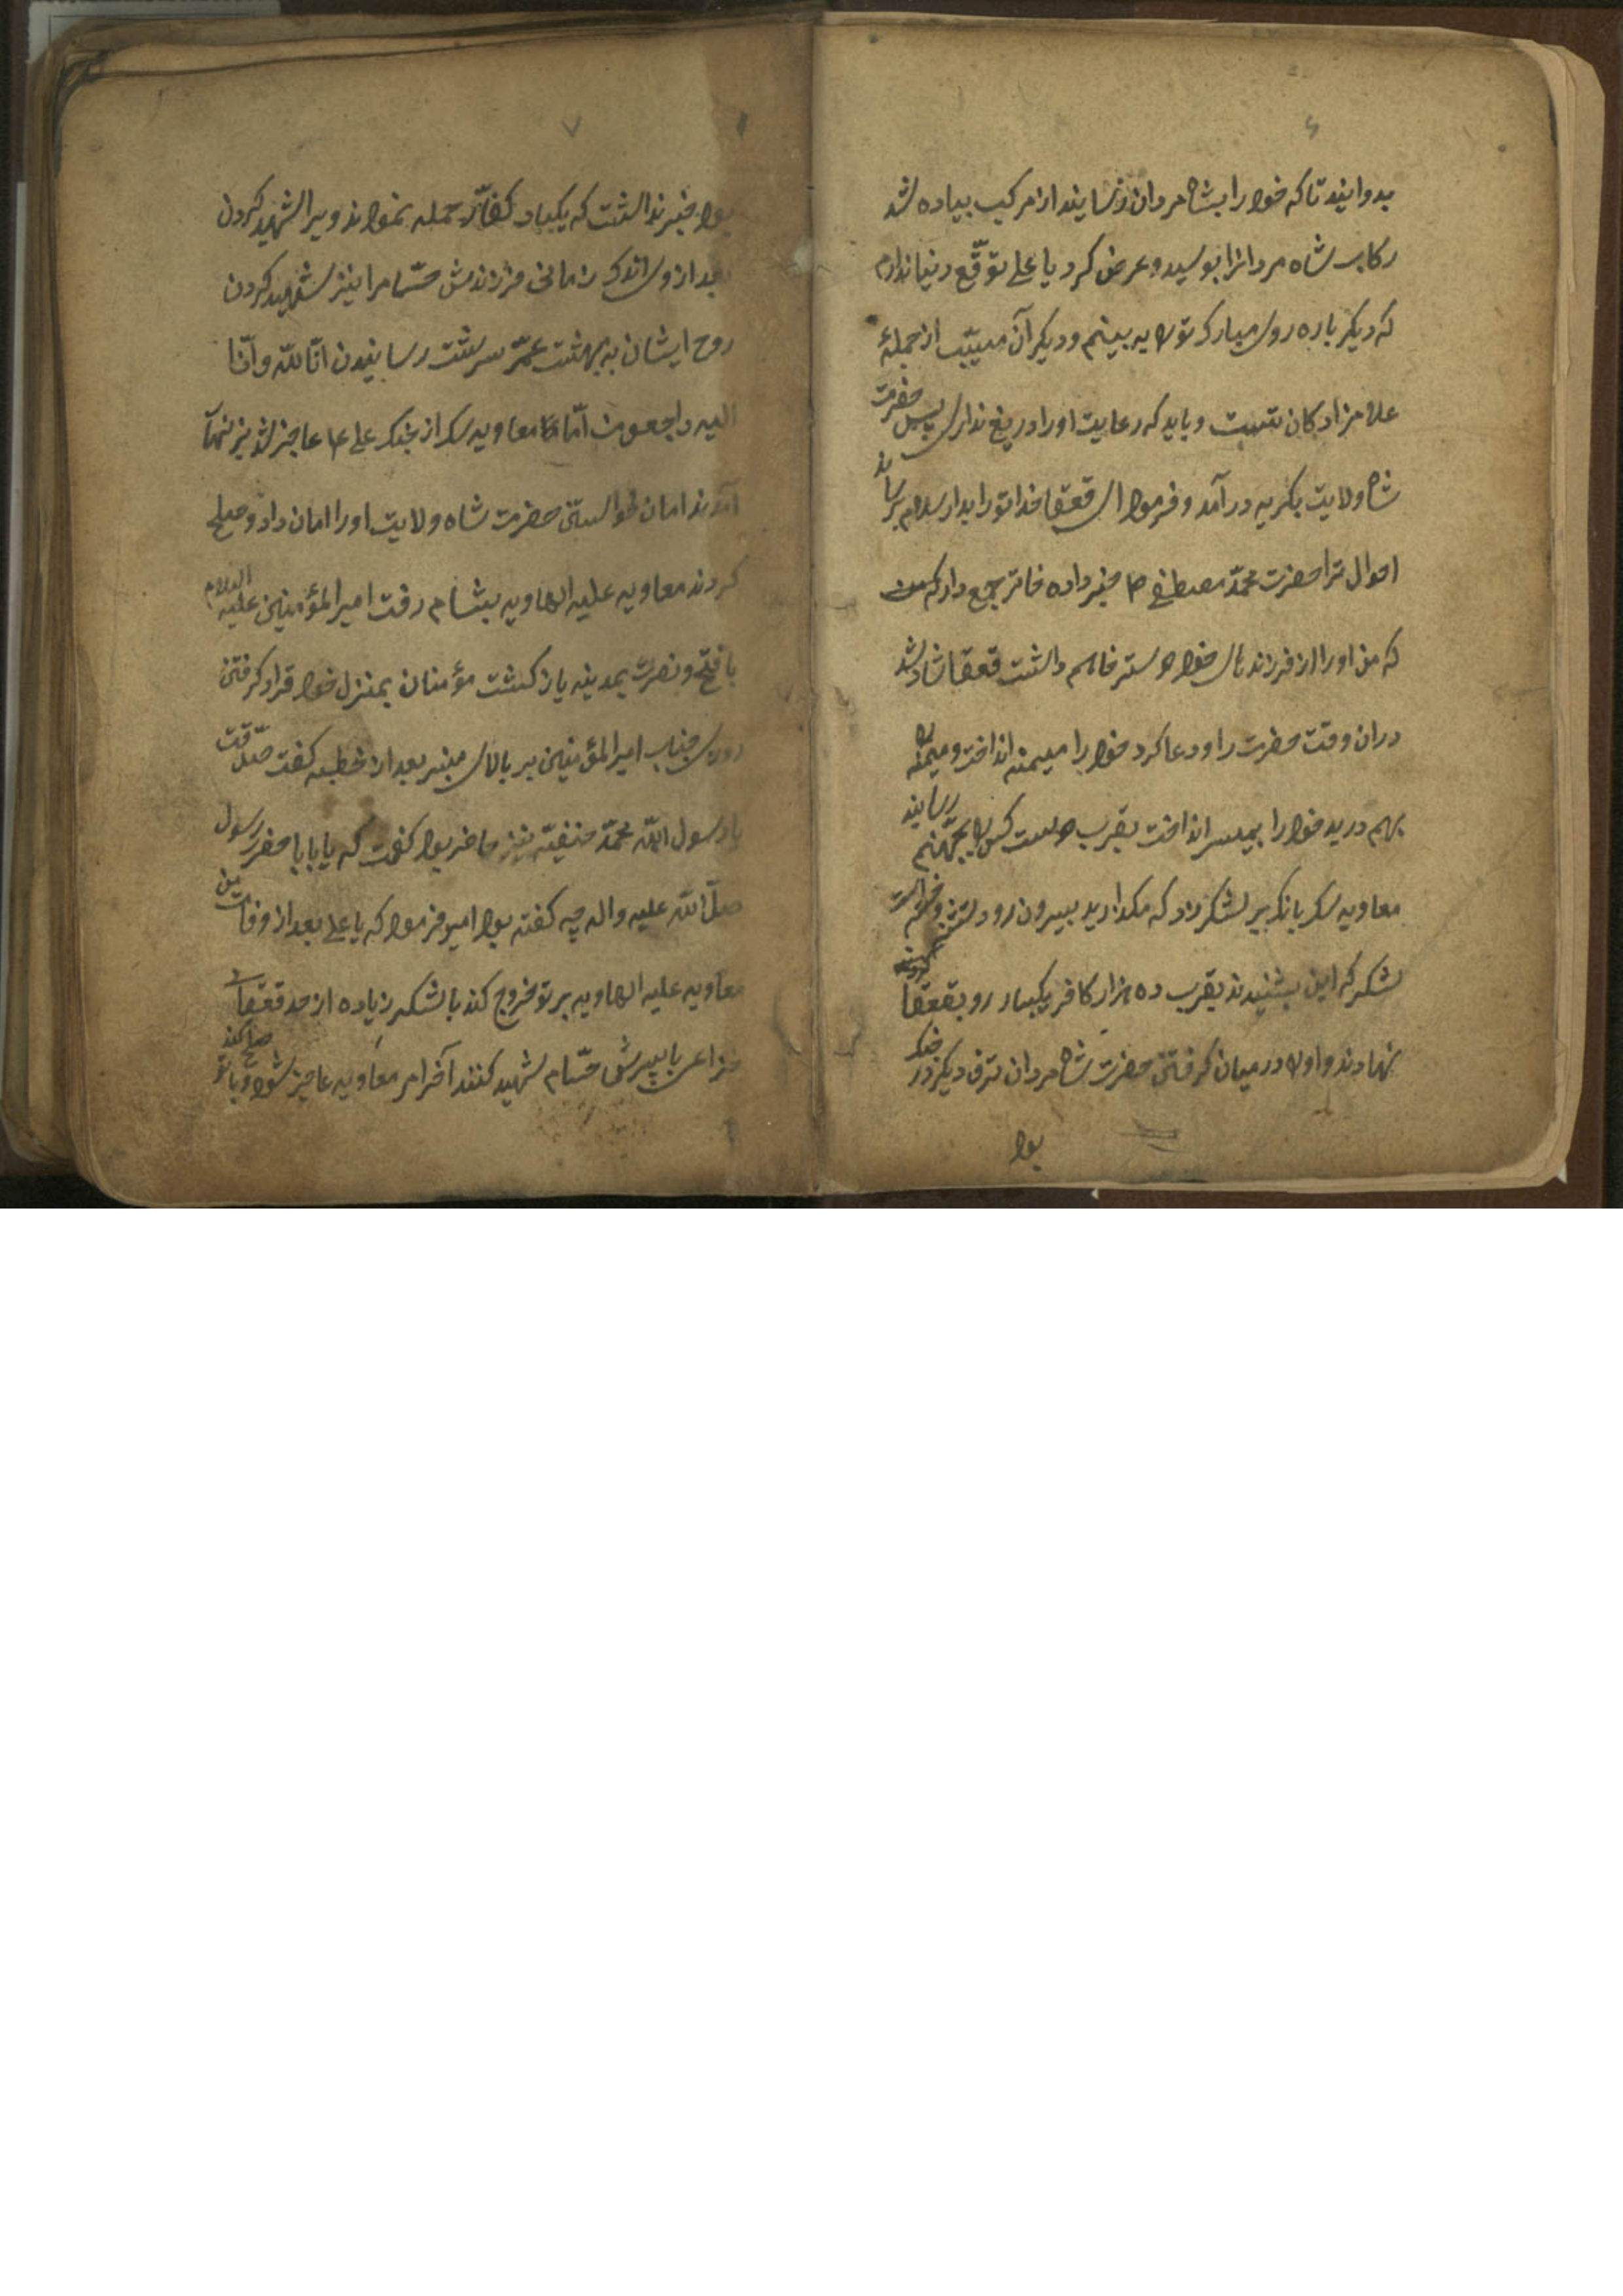 ۶
بدوانید تاکه خود را بشاه مردان رسانید از مرکب پیاده شد
رکاب شاه مردانرا بوسید و عرض کرد یا علی توقّع دنیا ندارم
که دیکر باره روی مبارک تورا به بینم و دیکر آن مسیّب از جملهٔ
غلامزادکان تست و باید که رعایت اورا دریغ نداری پس حضرت
شاه ولایت بکریه درآمد و فرمود ای قعقا خدا تورا بدار سلام برساند
احوال ترا حضرت محمّد مصطفی خبر داده خاتر جمع دار که
که من اورا از فرزندهای خود دوستر خاهم داشت قعقا شاد شد
دران وقت حضرت را ودعا کرد خود را بمیمنه انداخت و میمنه را
بهم درید خود را بمیسر انداخت بقرب دویست کس را بجهنّم رسانید
معاویه سک بانک بر لشکر زد که مکذارید بیرون رود
لشکر که این بشنیدند بقرب ده هزار کافر یکبار رو بقعقا
نهادند و اورا درمیان کرفتن حضرت شاه مردان ترف دیکر در جنک
بود
۷
بود خبر نداشت که یکبار کفّار حمله نمودند ویرا شهید کردن
بعد ازو باندک زمانی فرزندش حسّام را نیز شهید کردن
روح ایشان به بهشت عنبر سرشت رسانیدن انّا للّه وانّا
الیه راجعون امّا معاویه سک از جنک علی عاجز شد بزنهار
آمدند امان خواستن حضرت شاه ولایت اورا امان داد و صلح
کردند معاویه علیه الهاویه بشام رفت امیرالمؤمنین علیه السلام
با فتح و نصرت بمدینه باز کشت مؤمنان بمنزل خود قرار کرفتن
روزی جناب امیرالمؤمنین بر بالای منبر بعد از خطبه کفت صدّقت
یا رسول اللّه محمّد حنیفیّه نیز حاضر بود کفت که یا بابا حضرت رسول
صلّ اللّه علیه واله چه کفته بود امیر فرمود که یا علی بعد از وفات من
معاویه علیه الهاویه بر تو خروج کند با لشکر زیاده از حد قعقای
خزاعی با پسرش حسّام شهید کنند آخر امر معاویه عاجز شود و باتو صلح کند